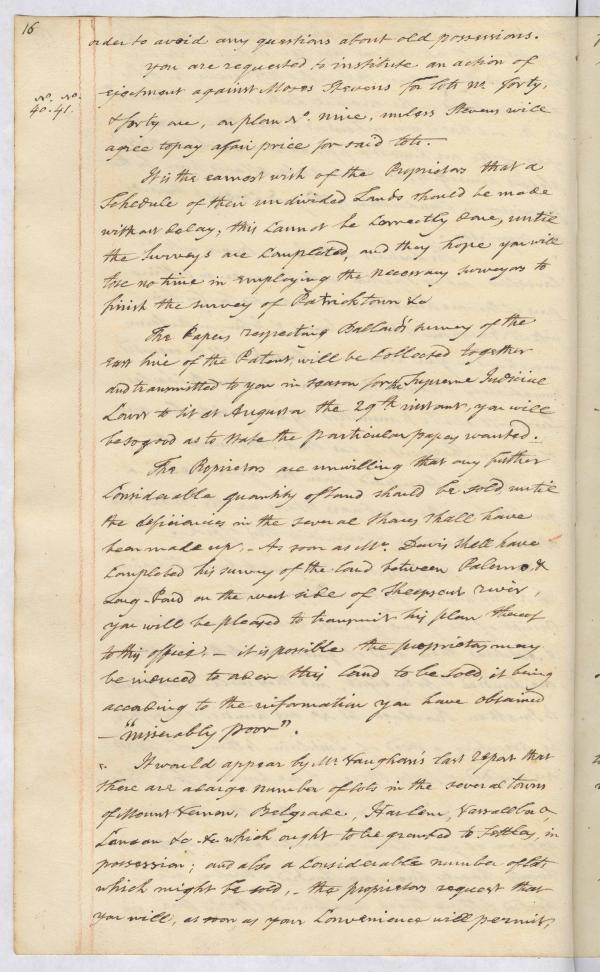 16
order to avoid any questions about old possessions.
You are requested to institute an action of
ejectment against Moses Stevens for lots no. forty,
No. No.
40. 41.
& forty one, on plan No. nine, unless Stevens will
agree to pay a fair price for said lots.
It is the earnest wish of the Proprietors that a
Schedule of their undivided Lands should be made
without delay; this cannot be correctly done, until
the Surveys are completed, and they hope you will
lose no time in employing the necessary surveyors to
finish the survey of Patricktown &c
The Papers respecting Ballard's survey of the
East line of the Patent, will be collected together
and transmitted to you in season for the Supreme Judicial
Court to sit at Augusta the 29th instant, you will
be so good as to state the particular papers wanted.
The Proprietors are unwilling that any further
considerable quantity of land should be sold, until
the deficiencies in the several shares shall have
been made up. - As soon as Mr. Davis shall have
completed his survey of the land between Palermo &
Long-Pond on the west side of Sheepscut river,
you will be pleased to transmit his plan thereof
to this office; - it is possible the proprietors may
be induced to order this land to be sold, it being
according to the information you have obtained
- "miserably poor".
It would appear by Mr. Vaughan's last report that
there are a large number of lots in the several towns
of Mount Vernon, Belgrade, Harlem, Vassalboro,
Canaan &c &c which ought to be granted to settlers, in
possession; and also a considerable number of lots
which might be sold, - the proprietors request that
you will, as soon as your convenience will permit,